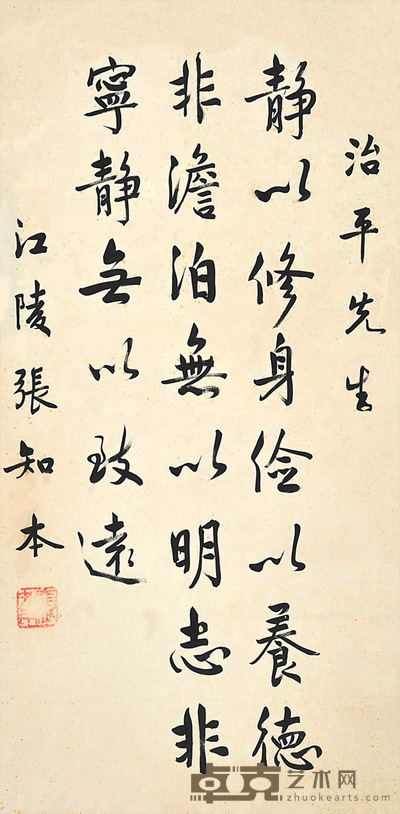 治平先生
静以修身俭以養德
非澹泊無以明志非
寧静无以致遠
江陵張知本
卓克艺术网
zhuokearts.com